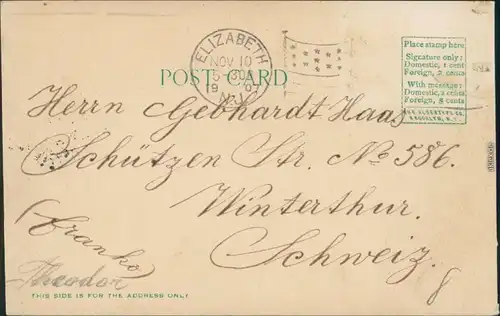 ELIZABETH
NOV 10
5-30
1907
N.J.
POST CARD
Place stamp here
Signature only:
Domestic, 1 cent
Foreign, 2 cents
With message:
Domestic, 2 cents
Foreign, 5 cents
THE ALBERTYPE CO.
BROOKLYN, N.Y.
Herrn Gebhardt Haas
Schützen Str. No 586.
Winterthur.
Schweiz.
(Franko)
Theodor
THIS SIDE IS FOR THE ADDRESS ONLY